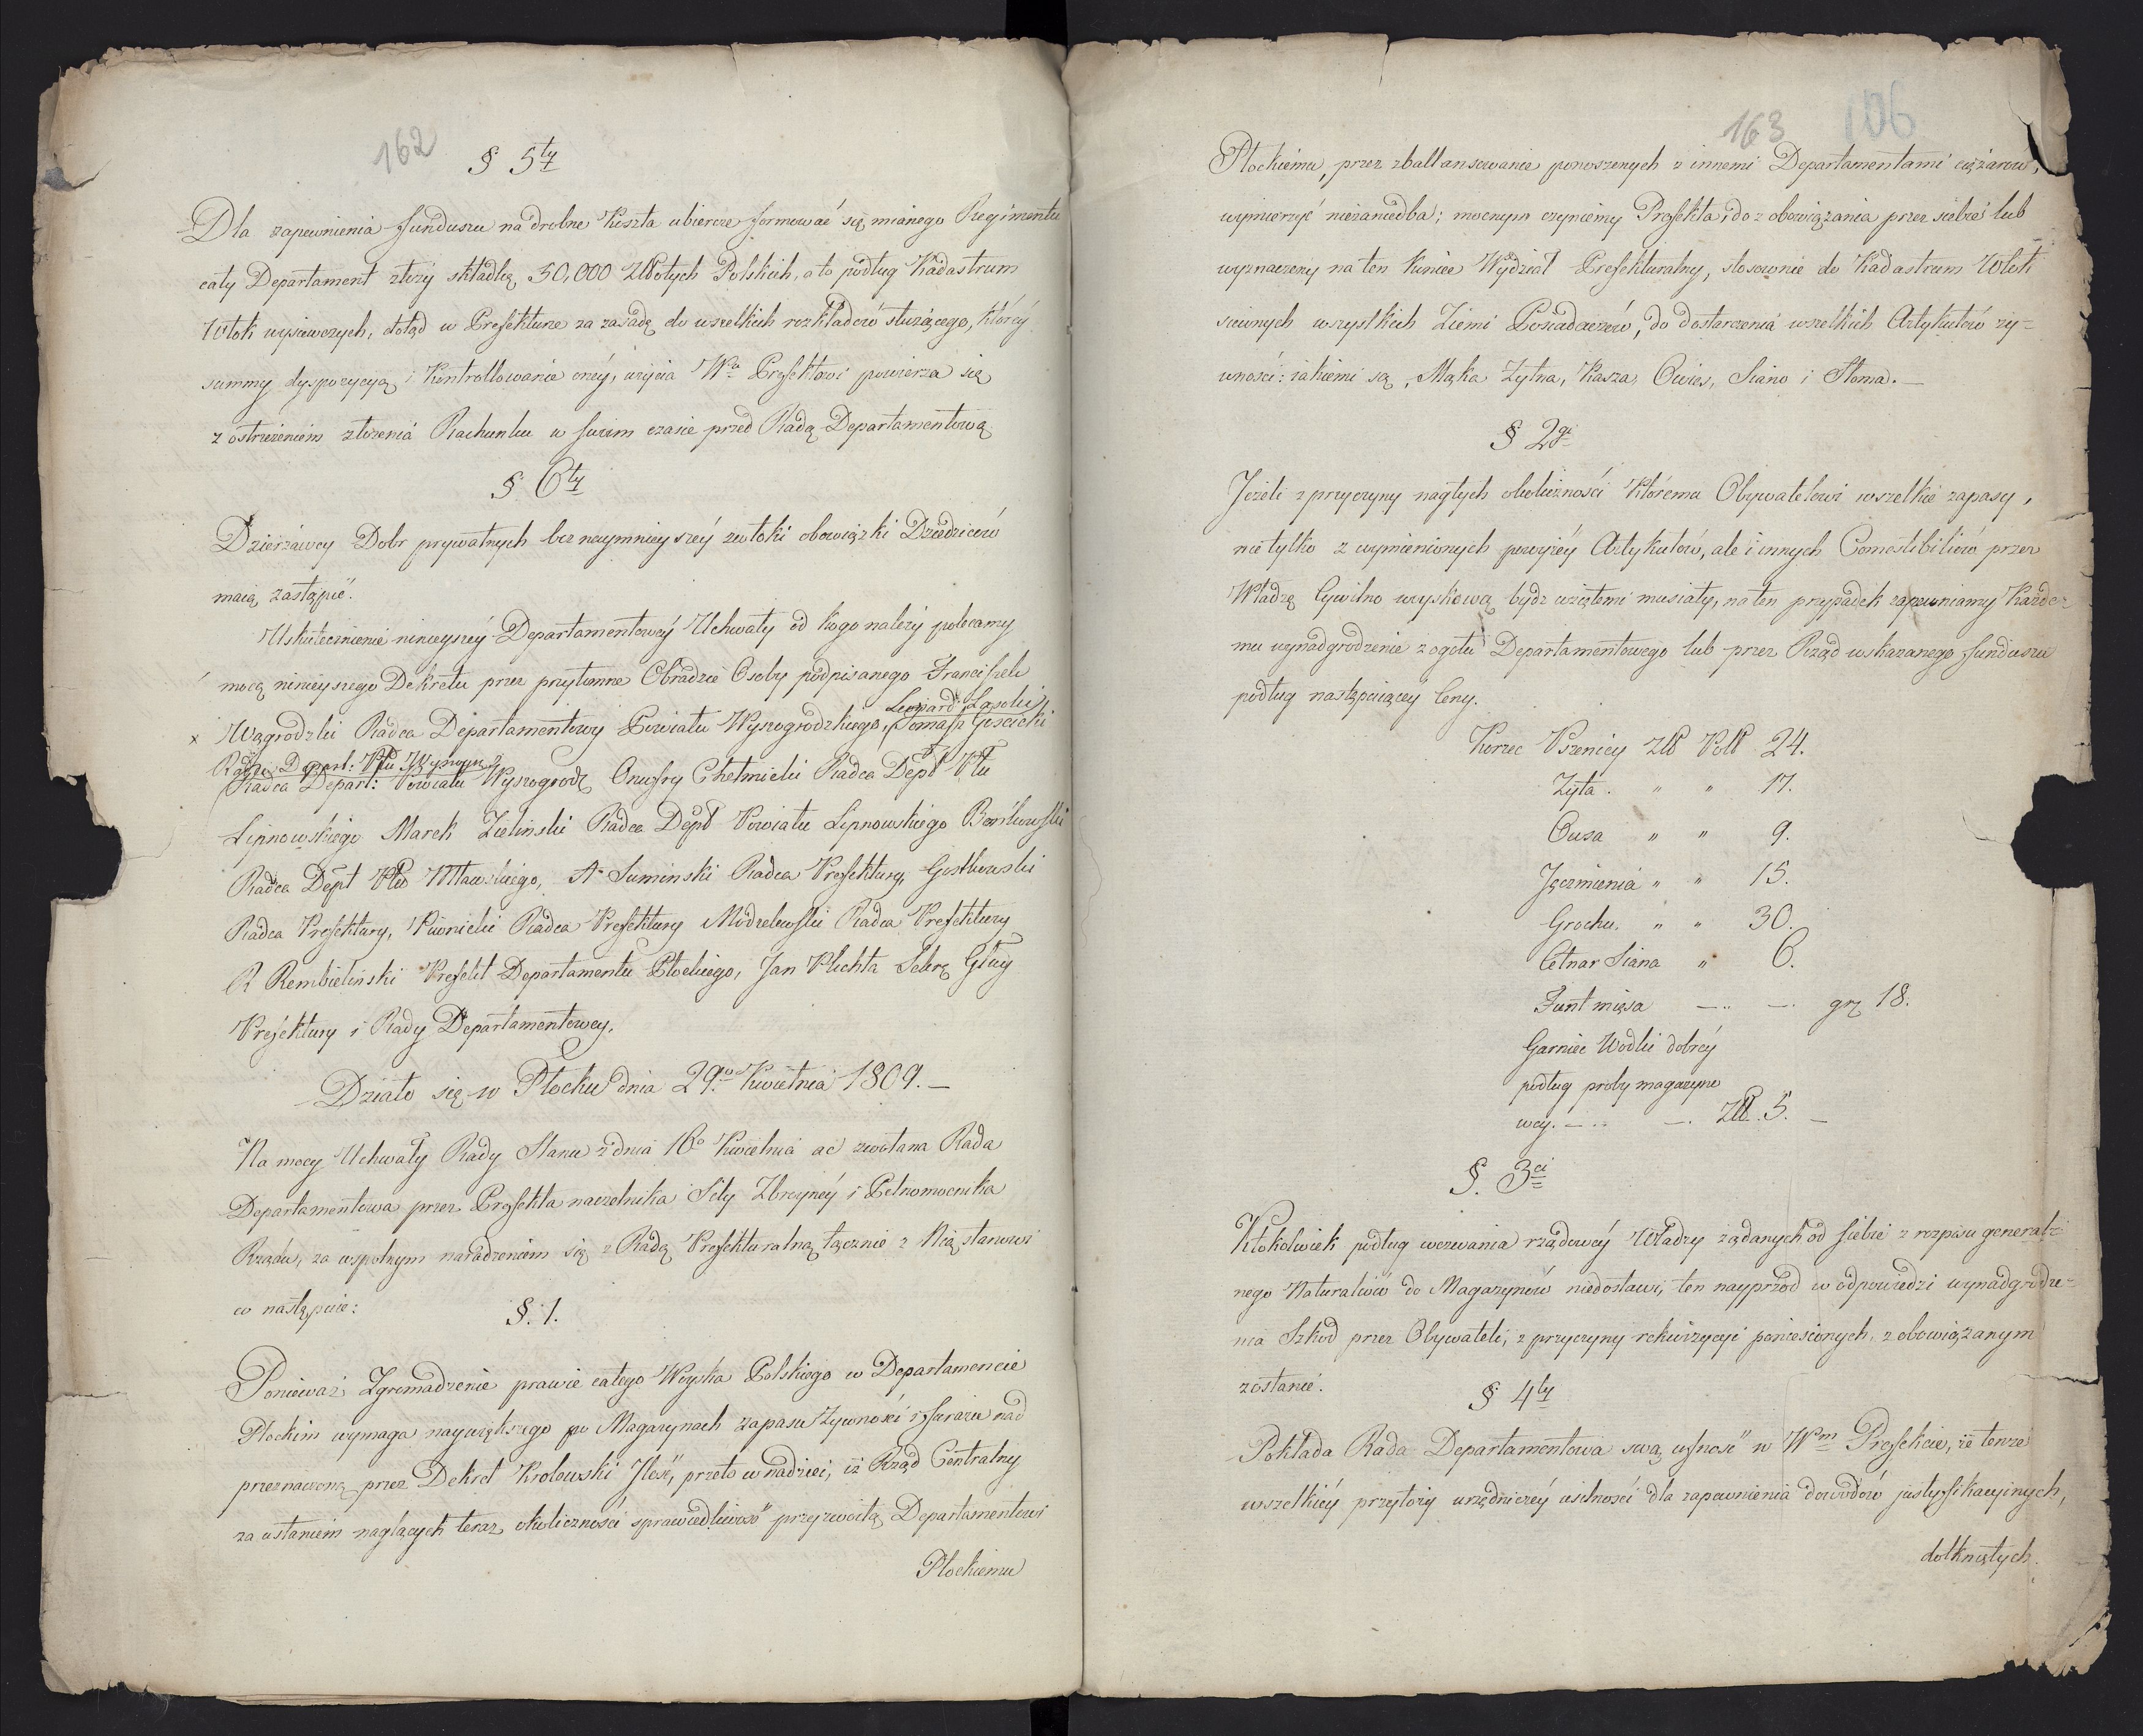 162
§ 5ty
Dla zapewnienia funduszu na drobne Koszta ubiorcze formować się mianego Regimentu
cały Departament złoży składkę 50,000 Złotych Polskich, a to podług Kadastrum
Włok wysiewczych, dotąd w Prefekturze za zasadę do wszelkich rozkładów służącego, którey
summy dyspozycyą i Kontrollowanie oney, użycia Wu Prefektowi powierza się
z ostrzeżeniem złożenia Rachunku w swoim czasie przed Radą Departamentową
§ 6ty
Dzierżawcy Dobr prywatnych bez naymnieyszey zwłoki obowiązki Dziedziców
maią zastąpić.
Uskutecznienie ninieyszey Departamentowey Uchwały od kogo należy polecamy
mocą ninieyszego Dekretu przez przytomne Obradzie Osoby podpisanego Franciszek
Leopard Lasocki
x Wągrodzki Radca Departamentowy Powiatu Wyszogrodzkiego, Tomasz Gościcki
Radca Depart: Ptu Wyszogr:
Radca Depart: Powiatu Wyszogrodz Onufry Chełmicki Radca Dept Ptu
Lipnowskiego Marek Zielinski Radca Dept Powiatu Lipnowskiego
Radca Dept Ptu Mławskiego, A. Suminski Radca Prefektury, Gostkowski
Radca Prefektury, Piwnicki Radca Prefektury Modzelewski Radca Prefektury
R Rembielinski Prefekt Departamentu Płockiego, Jan Plichta Sekrę Głuy
Prefektury i Rady Departamentowey.
Działo się w Płocku dnia 29o Kwietnia 1809. —
Na mocy Uchwały Rady Stanu z dnia 16o Kwietnia ac zwołana Rada
Departamentowa przez Prefekta naczelnika Siły Zbroyney i Pełnomocnika
Rządu, za wspolnym naradzeniem się z Radą Prefekturalną łącznie z Nią stanowi
co następuie:
§. 1.
Ponieważ Zgromadzenie prawie całego Woyska Polskiego w Departamencie
Płockim wymaga naywiększego po Magazynach zapasu Żywności i furażu nad
przeznaczoną przez Dekret Krolewski Ilość, przeto w nadziei, iż Rząd Centralny
za ustaniem naglących teraz okoliczności sprawiedliwość przyzwoitą Departamentowi
Płockiemu
163 106
Płockiemu, przez zballansowanie ponoszonych z innemi Departamentami ciężarow,
wymierzyć niezaniedba; mocnym czyniemy Prefekta, do z obowiązania przez siebie lub
wyznaczony na ten koniec Wydział Prefekturalny, stosownie do Kadastrum Włok
siewnych wszystkich Ziemi Posiadaczów, do dostarczenia wszelkich Artykułów ży=
wności: iakiemi są, Mąka Żytna, Kasza, Owies, Siano i Słoma. —
§ 2gi
Jeżeli z przyczyny nagłych okoliczności któremu Obywatelowi wszelkie zapasy,
nie tylko z wymienionych powyżéy Artykułów, ale i innych Comestibiliów przez
Władzę Cywilno woyskową bydz wziętemi musiały, na ten przypadek zapewniamy Każde=
mu wynadgrodzenie z ogołu Departamentowego lub przez Rząd wskazanego funduszu
podług następuiącey Ceny.
Korzec Pszenicy Zł Pol 24.
Żyta . " " 17.
Owsa " " 9.
Jęczmienia " " 15.
Grochu. " " 30.
Cetnar Siana " 6.
Funt mięsa —.. —. grz 18.
Garniec Wodki dobréy
podług proby magazyno
wey. — .. —. Zł. 5. —
§. 3ci
Ktokolwiek podług wezwania rządowéy Władzy żądanych od siebie z rozpisu general=
nego Naturaliów do Magazynów niedostawi, ten nayprzód w odpowiedzi wynadgrodze=
nia Szkod przez Obywateli, z przyczyny rekwizycyi poniesionych, z obowiązanym
zostanie.
§ 4ty
Pokłada Rada Departamentowa swą ufność w Wm Prefekcie, że tenże
wszelkiéy przyłoży urzędniczéy usilności dla zapewnienia dowodów justyfikacyinych,
dotkniętych.